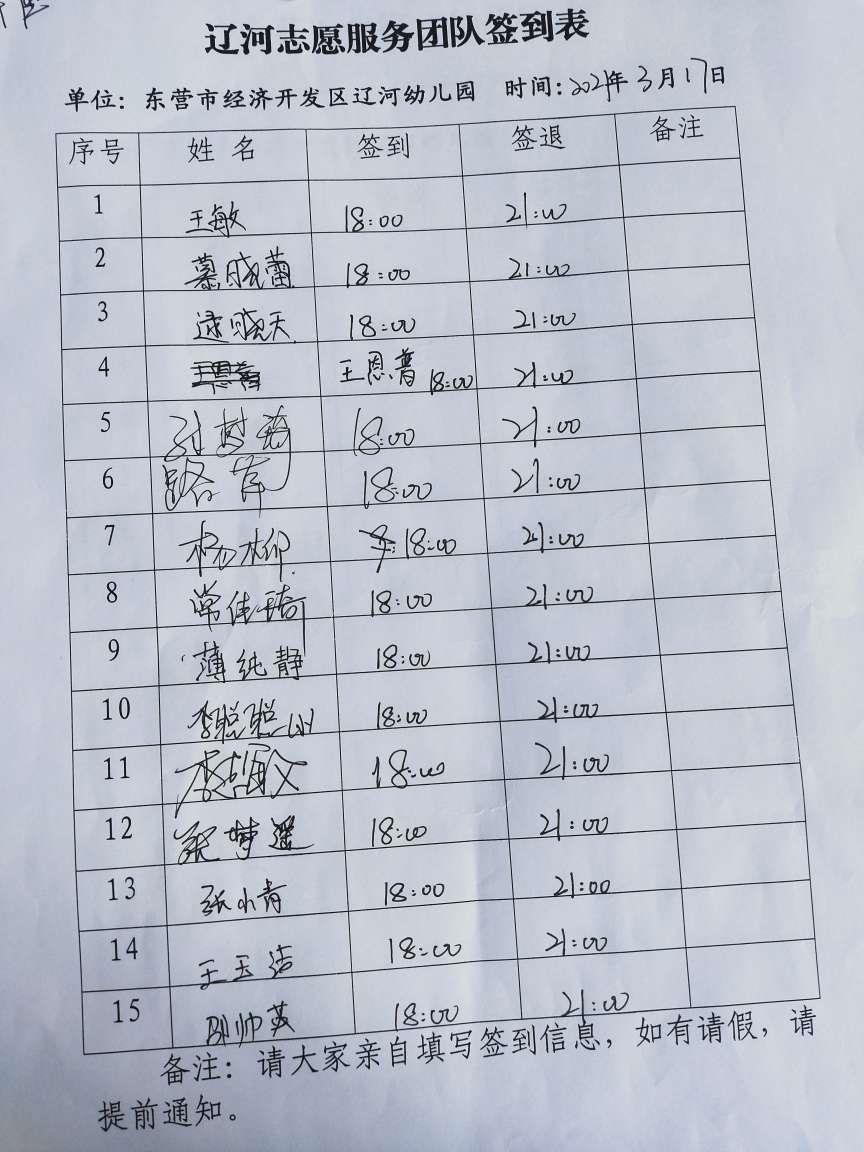 辽河志愿服务团队签到表
单位：东营市经济开发区辽河幼儿园 时间：2021年3月17日
序号 姓名 签到 签退 备注
1 王敏 18:00 21:00
2 慕晓蕾 18:00 21:00
3 逯晓天 18:00 21:00
4 王恩普 18:00 21:00
5 18:00 21:00
6 路苇 18:00 21:00
7 杨柳 18:00 21:00
8 常佳琦 18:00 21:00
9 薄纯静 18:00 21:00
10 李聪聪 18:00 21:00
11 18:00 21:00
12 梦遥 18:00 21:00
13 张小青 18:00 21:00
14 王玉洁 18:00 21:00
15 邵帅英 18:00 21:00
备注：请大家亲自填写签到信息，如有请假，请
提前通知。